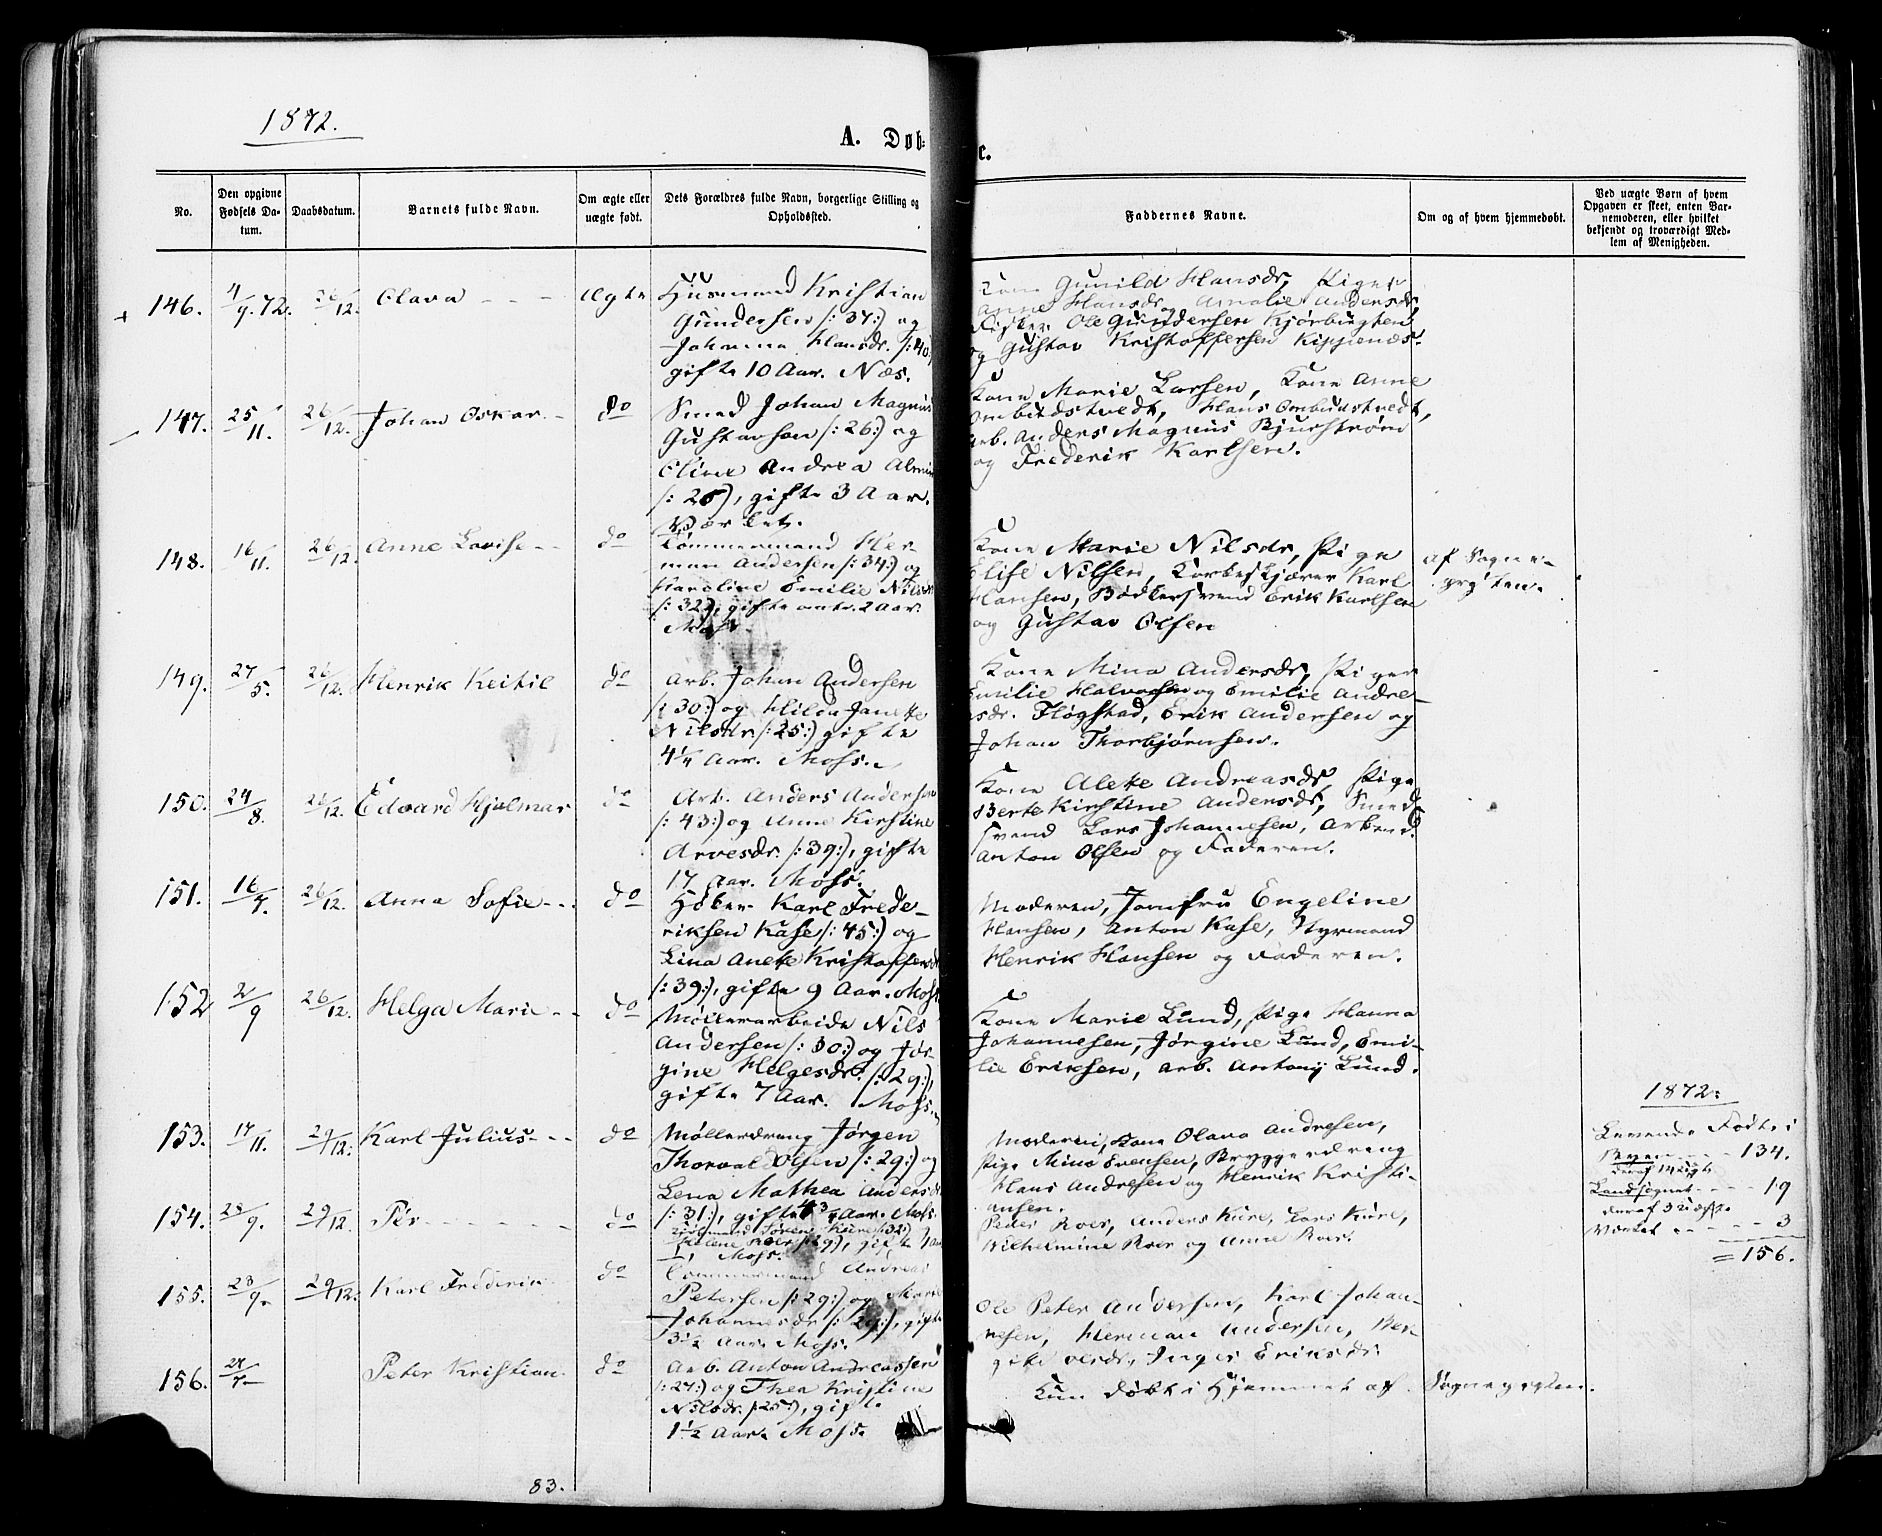 1872.
A. Døb-
te.
No.
Den opgivne Fødsels Datum.
Daabsdatum.
Barnets fulde Navn.
Om ægte eller uægte født.
Dets Forældres fulde Navn, borgerlige Stilling og Opholdssted.
Faddernes Navne.
Om og af hvem hjemmedøbt.
Ved uægte Børn af hvem Opgaven er skeet, enten Barnemoderen, eller hvilket bekjendt og troværdigt Medlem af Menigheden.
146. 4/9.72. 26/12. Olava - - - ægte
Husmand Kristian
Gundersen /:37:/ og
Johanna Hansdr. /:40
gifte 10 Aar. Næs.
Kone Gunild Hansdr, Piger
Anne Hansdr og Amalie Andersdr,
Fisker Ole Gundersen Kjørbugten
og Gustav Kristoffersen Kippenæs.
147. 25/11. 26/12. Johan Oskar - do
Smed Johan Magnus
Gustavson /:26:/ og
Oline Andrea Almin
/:26/, gifte 3 Aar.
Værket.
Kone Marie Larsen, Kone Anne
Ombudstvedt, Hans Ombudstvedt,
Arb. Anders Magnus Bjurstrøm
og Frederik Karlsen.
148. 16/11. 26/12. Anne Lovise - - do
Tømmermand Her-
man Andersen /:34:/ og
Karoline Emilie Nilsdr
/:32/, gifte 2 Aar.
Moss.
Kone Marie Nilsdr, Pige
Elise Nilsen, Karl
Hansen, Bødkersvend Erik Karlsen
og Gustav Olsen
af Sogne-
præsten.
149. 27/5. 26/12. Henrik Keitil do
Arb. Johan Andersen
/:30:/ og Hilda Janette
Nilsdr /:25:/ gifte
4 1/4 Aar. Moss.
Kone Mina Andersdr, Piger
Emilie Halvorsen og Emilie Andre-
sdr. Fløgstad, Erik Andersen og
Johan Thorbjørnsen.
150. 24/8. 26/12. Edvard Hjalmar do
Arb. Anders Anderson
/:43:/ og Anne Kirstine
Arvesdr. /:39:/, gifte
17 Aar. Moss.
Kone Alette Andreasdr, Pige
Berte Kirstine Andersdr, Smed-
svend Lars Johannesen, Arbmd.
Anton Olsen og Faderen.
151. 16/7. 26/12. Anna Sofie - - do
Høker Karl Frede-
riksen Kase /:45:/ og
Lina Anette Kristoffersdr
/:39:/, gifte 9 Aar. Moss
Moderen, Jomfru Engeline
Hansen, Anton Kase, Styrmand
Henrik Hansen og Faderen.
152 2/9 26/12. Helga Marie - - do
Møllerarbeide Nils
Andersen /:30:/ og Jør-
gine Helgesdr. /:29:/,
gifte 7 Aar. Moss.
Kone Marie Lund, Pige Hanna
Johannesen, Jørgine Lund, Emi-
lie Eriksen, Arb. Antony Lund.
153. 17/11. 29/12. Karl Julius - - do
Møllerdreng Jørgen
Thorvald Olsen /:29:/ og
Lena Mathea Andersdr
/:31:/, gifte 4 3/4 Aar. Moss.
Moderen, Kone Olava Andresen,
Pige Mina Evensen, Bryggerdreng
Hans Andresen og Henrik Kristi-
ansen.
154. 28/9. 29/12. Per - - - - do
Søren Kure /:32:/ og
Helene Roer /:29/, gifte
Moss.
Peder Roer, Anders Kure, Lars Kure,
Vilhelmine Roer og Anne Roer.
155. 23/9. 29/12. Karl Frederik do
Tømmermand Andreas
Petersen /:29:/ og Marie
Johannesdr /:29:/, gifte
3 1/2 Aar. Moss.
Ole Peter Andersen, Karl Johan-
nesen, Herman Andersen, Ber-
gitte Inger Eriksdr.
156. 28/7. Peter Kristian. do
Arb. Anton Andreassen
/:27:/ og Thea Kristine
Nilsdr. /:25:/, gifte
1 1/2 Aar. Moss.
Kun døbt i Hjemmet af Sognepresten.
1872:
Levende Fødte i
Byen - - - 134.
deraf 14 uægte
Landsognet - - - - 19
deraf 3 uægte
Værket - - - - - 3
= 156.
83.